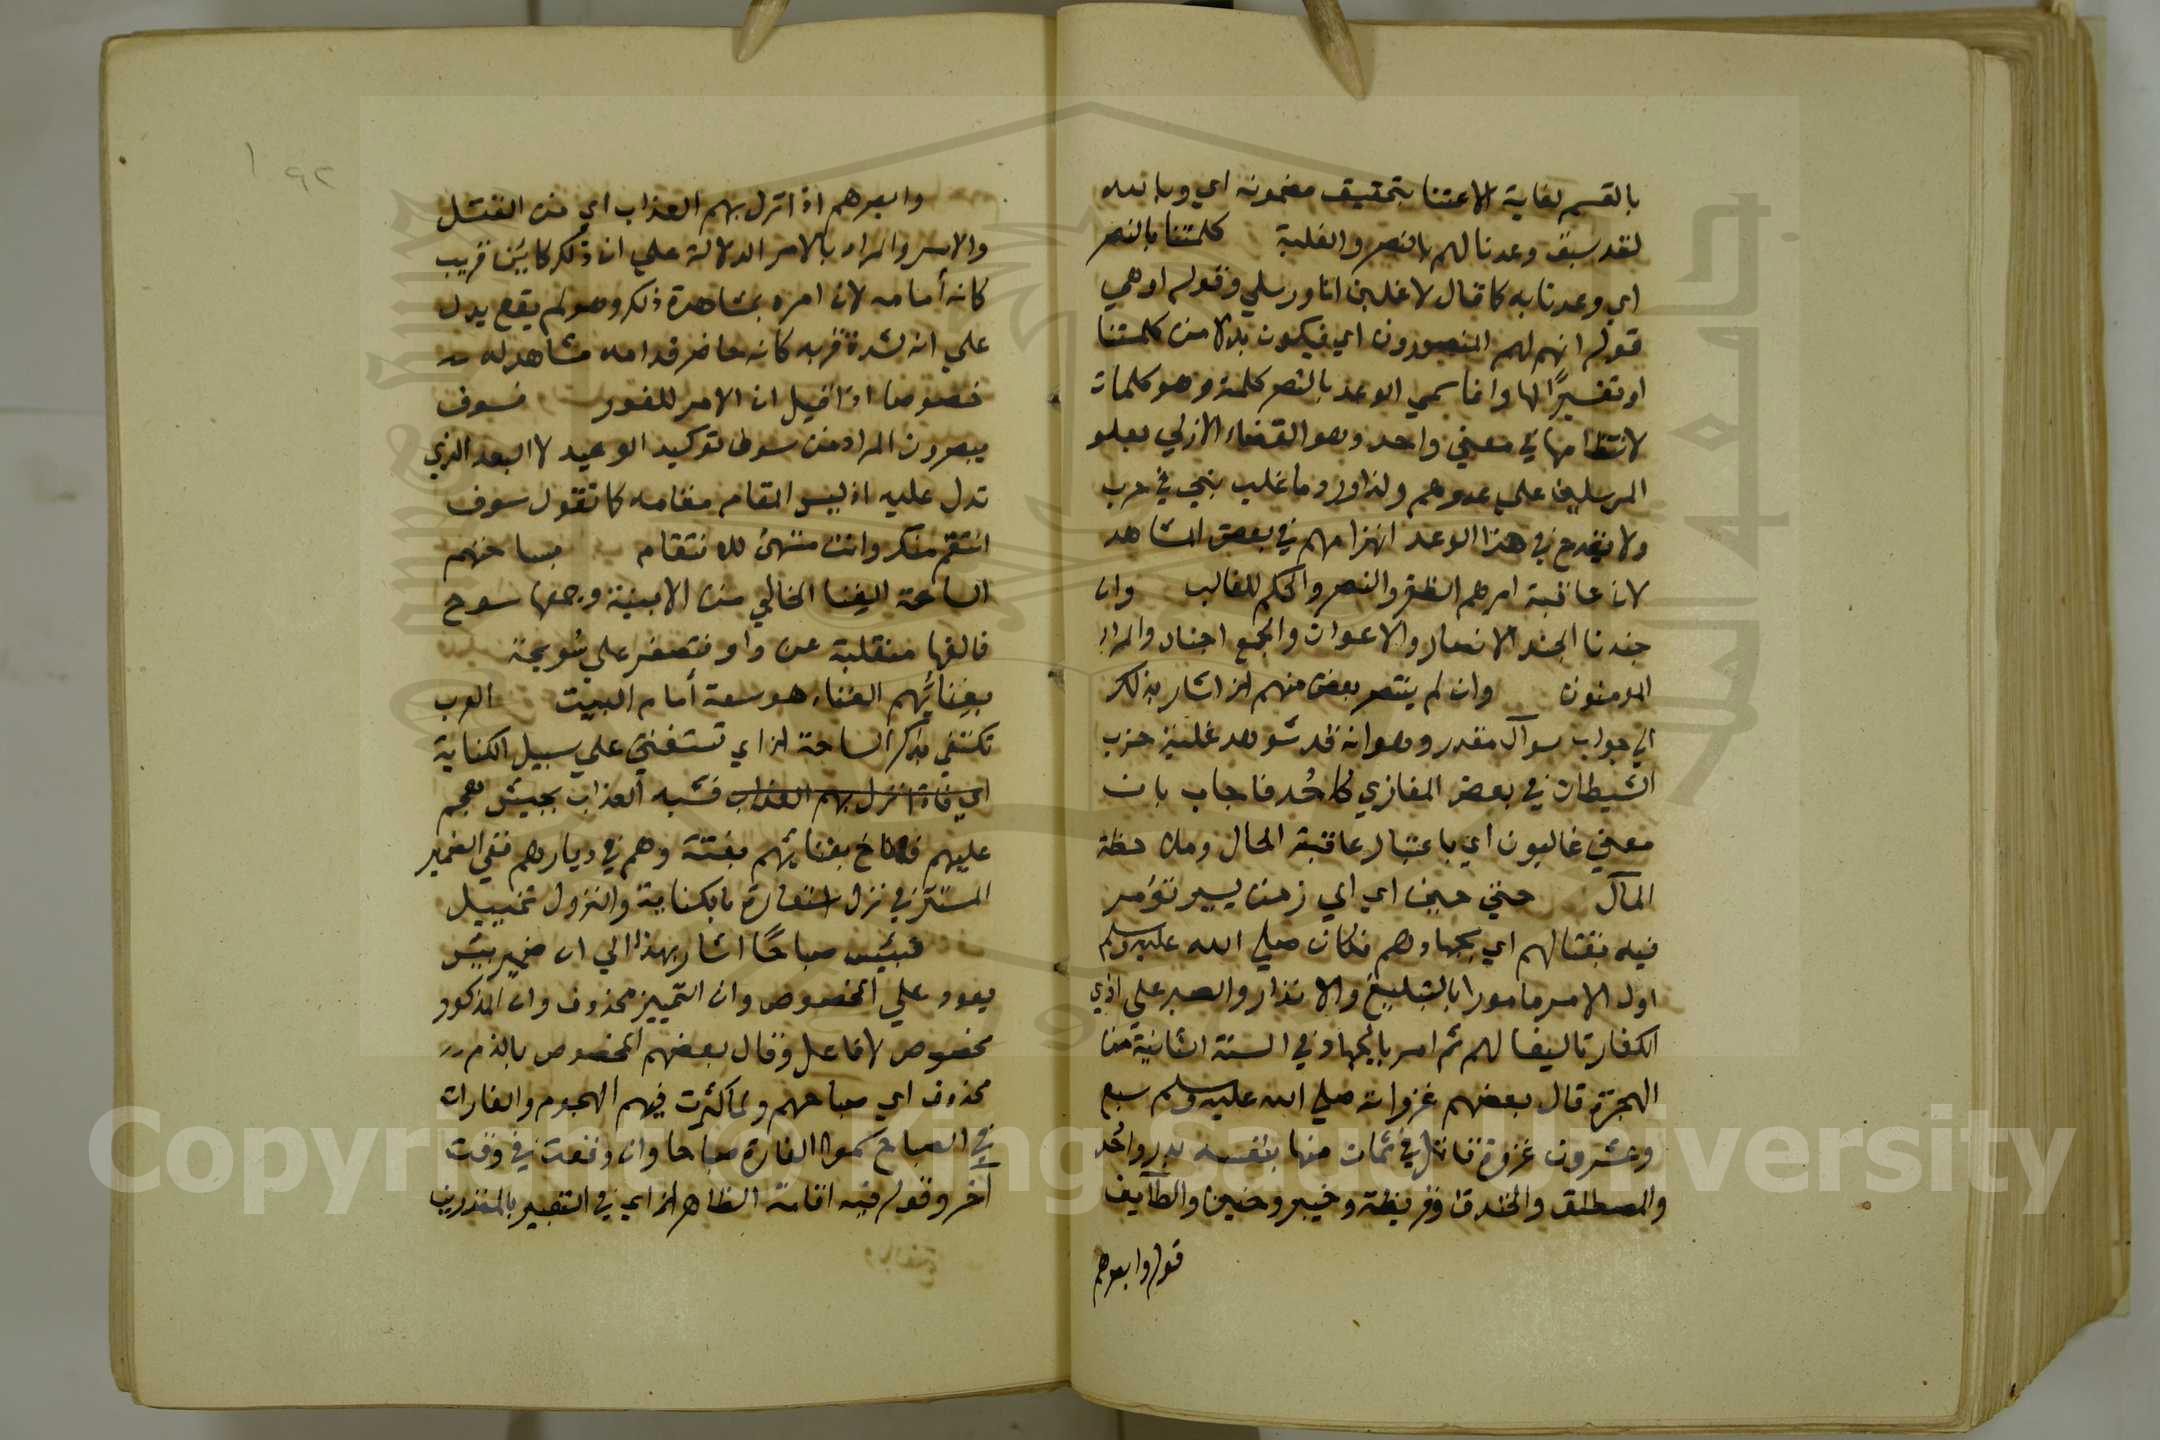 بالقسم لغاية الاعتنا بتحقيق مضمونه اي وبالله
لقد سبق وعدنا لهم بالنصر والغلبة كلمتنا بالنصر
اي وعدنا به كما قال لاغلبن انا ورسلي وقوله او هي
قوله انهم لهم المنصورون اي فيكون بدلا من كلمتنا
او تفسيرًا لها وانما سمي الوعد بالنصر كلمة وهو كلمات
لانتظامها في معني واحد وهو القضاء الازلي بعلو
المرسلين علي عدوهم ولذا ورد وما غلب نبي في حرب
ولا يقدح في هذا الوعد انهزامهم في بعض المشاهد
لان عاقبة امرهم الظفر والنصر والحكم للغالب وان
جندنا الجند الانصار والاعوان والجمع اجناد والمراد
المومنون وان لم ينتصر بعض منهم الخ اشار بذلك
الي جواب سوآل مقدر وهو انه قد شوهد غلبة حزب
الشيطان في بعض المغازي كاحُد فاجاب بان
معني غالبون اي باعتبار عاقبة الحال وملاحظة
المآل حتي حين اي اي زمن يسير تؤمر
فيه بقتالهم اي بجهادهم فكان صلي الله عليه وسلم
اول الامر مامورا بالتبليغ والانذار والصبر علي اذي
الكفار تاليفا لهم ثم امر بالجهاد في السنة الثانية من
الهجرة قال بعضهم غزواته صلي الله عليه وسلم سبع
وعشرون غزوة قاتل في ثمان منها بنفسه بدر واحُد
والمصطلق والخندق وقريظة وخيبر وحنين والطآيف
قوله وابصرهم
١٩٢
وابصرهم اذا نزل بهم العذاب اي من القتل
والاسر والمراد بالامر الدلالة علي ان ذلك كاين قريب
كانه أمامه لان امره بمشاهدة ذلك وهو لم يقع يدل
علي انه لشدة قربه كانه حاضر قدامه مشاهد له
خصوصا اذا قيل ان الامر للفور فسوف
يبصرون المراد من سوف توكيد الوعيد لا البعد الذي
تدل عليه اذ ليس المقام مقامه كما تقول سوف
انتقم منك وانت متهئ للانتقام بساحتهم
الساحة الفنا الخالي من الابنية وجمعها سوح
فالفها منقلبة عن واو فتصغر علي سُويحة
بفِنائِهم الفناء هو سعة أمام البيت العرب
تكتفي بذكر الساحة الخ اي تستغني علي سبيل الكناية
اي فاذا نزل بهم العذاب فشبه العذاب بجيش هجم
عليهم فاناخ بفنائهم بغتة وهم في ديارهم ففي الضمير
المستتر في نزل استعارة بالكناية والنزول تخييل
فبئس صباحًا اشار بهذا الي ان ضمير بئس
يعود علي المخصوص وان التمييز محذوف وان المذكور
مخصوص لا فاعل وقال بعضهم المخصوص بالذم
محذوف اي صباحهم ولما كثرت فيهم الهجوم والغارات
في الصباح سموا الغارة صباحا وان وقعت في وقت
آخر وقوله فيه اقامة الظاهر الخ اي في التعبير بالمنذرين
Copyright © King Saud University